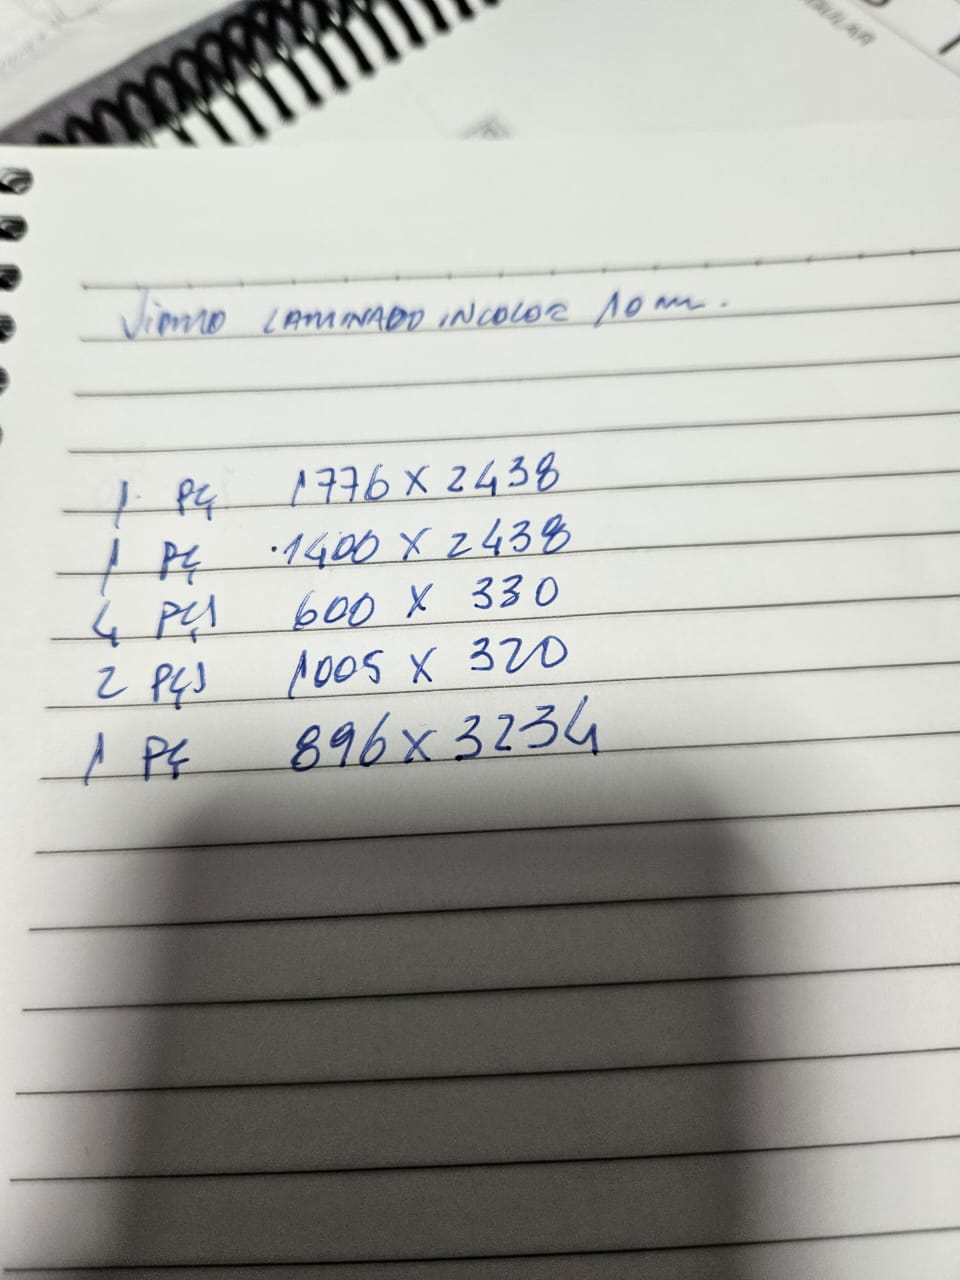 DULAR
VIDRO LAMINADO INCOLOR 10 mm.
1 PÇ 1776 X 2438
1 PÇ 1400 X 2438
4 PÇS 600 X 330
2 PÇS 1005 X 320
1 PÇ 896 X 3234